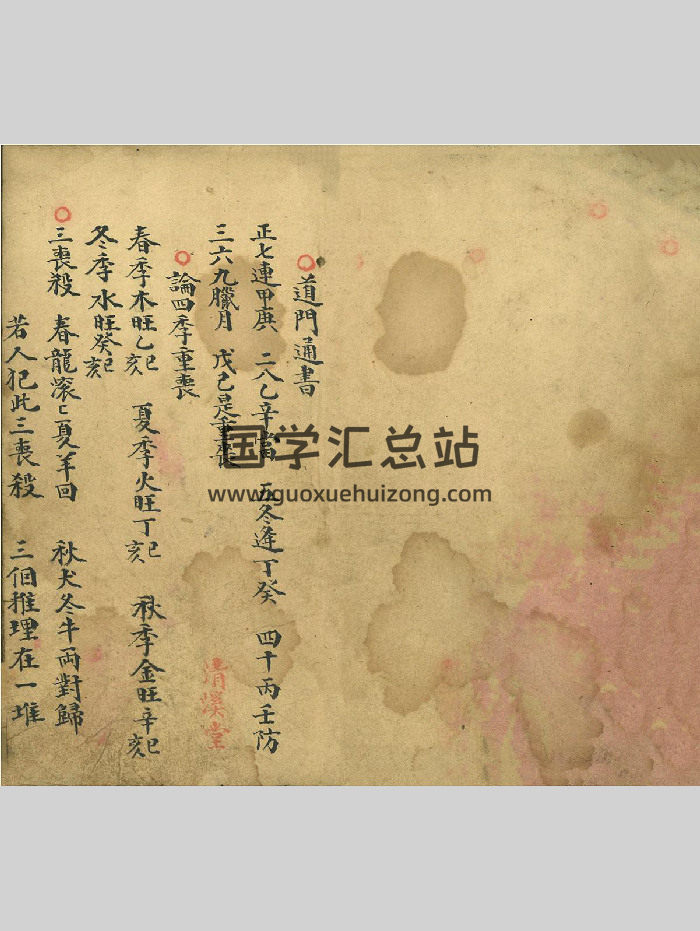 道門通書
正七連甲庚 二八乙辛當 五冬逢丁癸 四十丙壬防
三六九臘月 戊己是重喪
清溪堂
論四季重喪
春季木旺乙巳亥 夏季火旺丁巳亥 秋季金旺辛巳亥
冬季水旺癸巳亥
三喪殺 春龍滚〻夏羊回 秋犬冬牛兩對歸
若人犯此三喪殺 三個推理在一堆
国学汇总站
www.guoxuehuizong.com